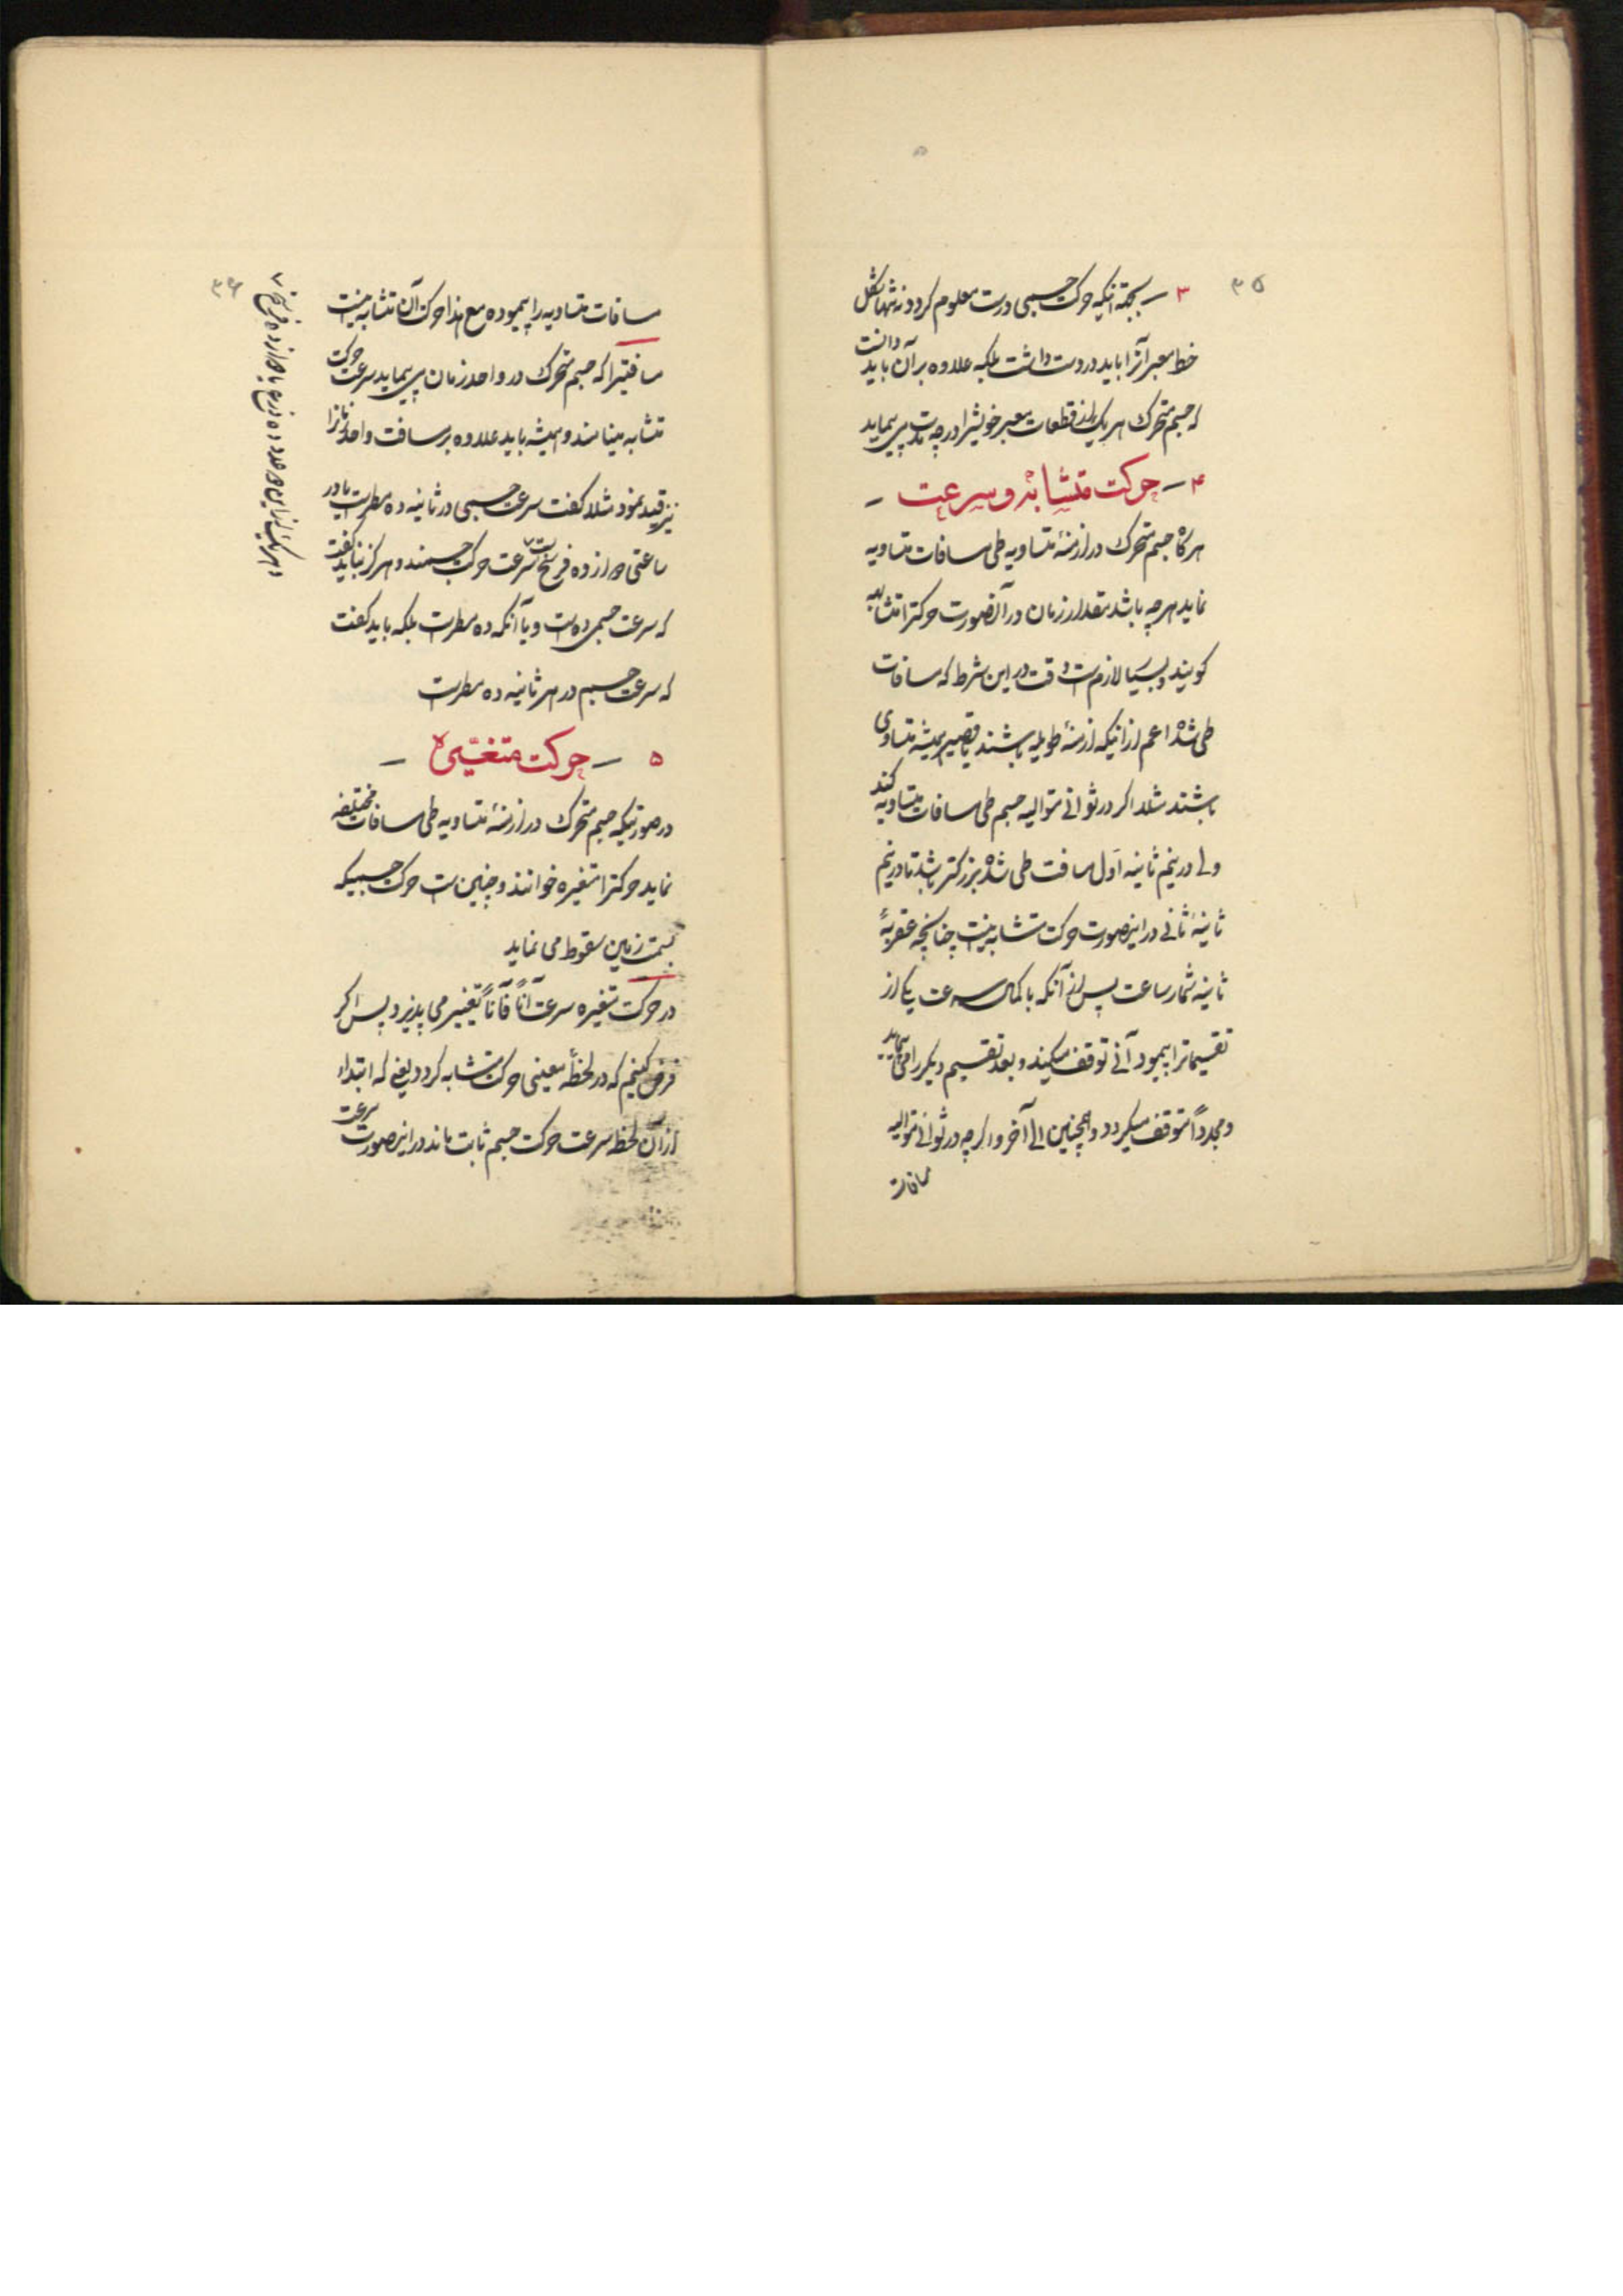 ۳۵
۳ — بجهة اینکه حرکت جسمی درست معلوم گردد نه تنها شکل
خط معبر آنرا باید در دست داشت بلکه علاوه بر آن باید دانست
که جسم متحرک هر یک از قطعات معبر خویشرا در چه مدت می پیماید
۴ — حرکت متشابه و سرعت —
هرگاه جسم متحرک در ازمنهٔ متساویه طی مسافات متساویه
نماید هر چه باشد مقدار زمان در آنصورت حرکترا متشابه
گویند و بسیار لازمست دقت در این شرط که مسافات
طی شده اعم از اینکه ازمنهٔ طویله باشند یا قصیر همیشه متساوی
باشند مثلا اگر در ثوانی متوالیه جسم طی مسافات متساویه کند
ولی در نیم ثانیه اول مسافت طی شده بزرگتر باشد تا در نیم
ثانیهٔ ثانی در اینصورت حرکت متشابه نیست چنانچه عقربهٔ
ثانیه شمار ساعت پس از آنکه با کمال سرعت یکی از
تقسیماترا پیمود آنی توقف میکند و بعد تقسیم دیگر را می پیماید
و مجدداً متوقف میگردد و همچنین الی آخر و اگر چه در ثوانی متوالیه
مسافات
۳۶
مسافات متساویه را پیموده مع هذا حرکت آن متشابه نیست
مسافتیرا که جسم متحرک در واحد زمان می پیماید سرعت حرکت
متشابه مینامند و همیشه باید علاوه بر مسافت واحد زمانرا
نیز قید نمود مثلا گفت سرعت جسمی در ثانیه ده مطر است یا در
ساعتی دوازده فرسخ است سرعت حرکت جسمند و هرگز نباید گفت
که سرعت جسمی ده است و یا آنکه ده مطر است بلکه باید گفت
که سرعت جسم در هر ثانیه ده مطر است
۵ — حرکت متغیّره —
در صورتیکه جسم متحرک در ازمنهٔ متساویه طی مسافات مختلفه
نماید حرکترا متغیره خوانند و چنین است حرکت جسمیکه
بسمت زمین سقوط می نماید
در حرکت متغیره سرعت آناً فآناً تغییر می پذیرد پس اگر
فرض کنیم که در لحظهٔ معینی حرکت متشابه گردد یعنی که ابتداء
از آن لحظه سرعت حرکت جسم ثابت ماند در اینصورت سرعت